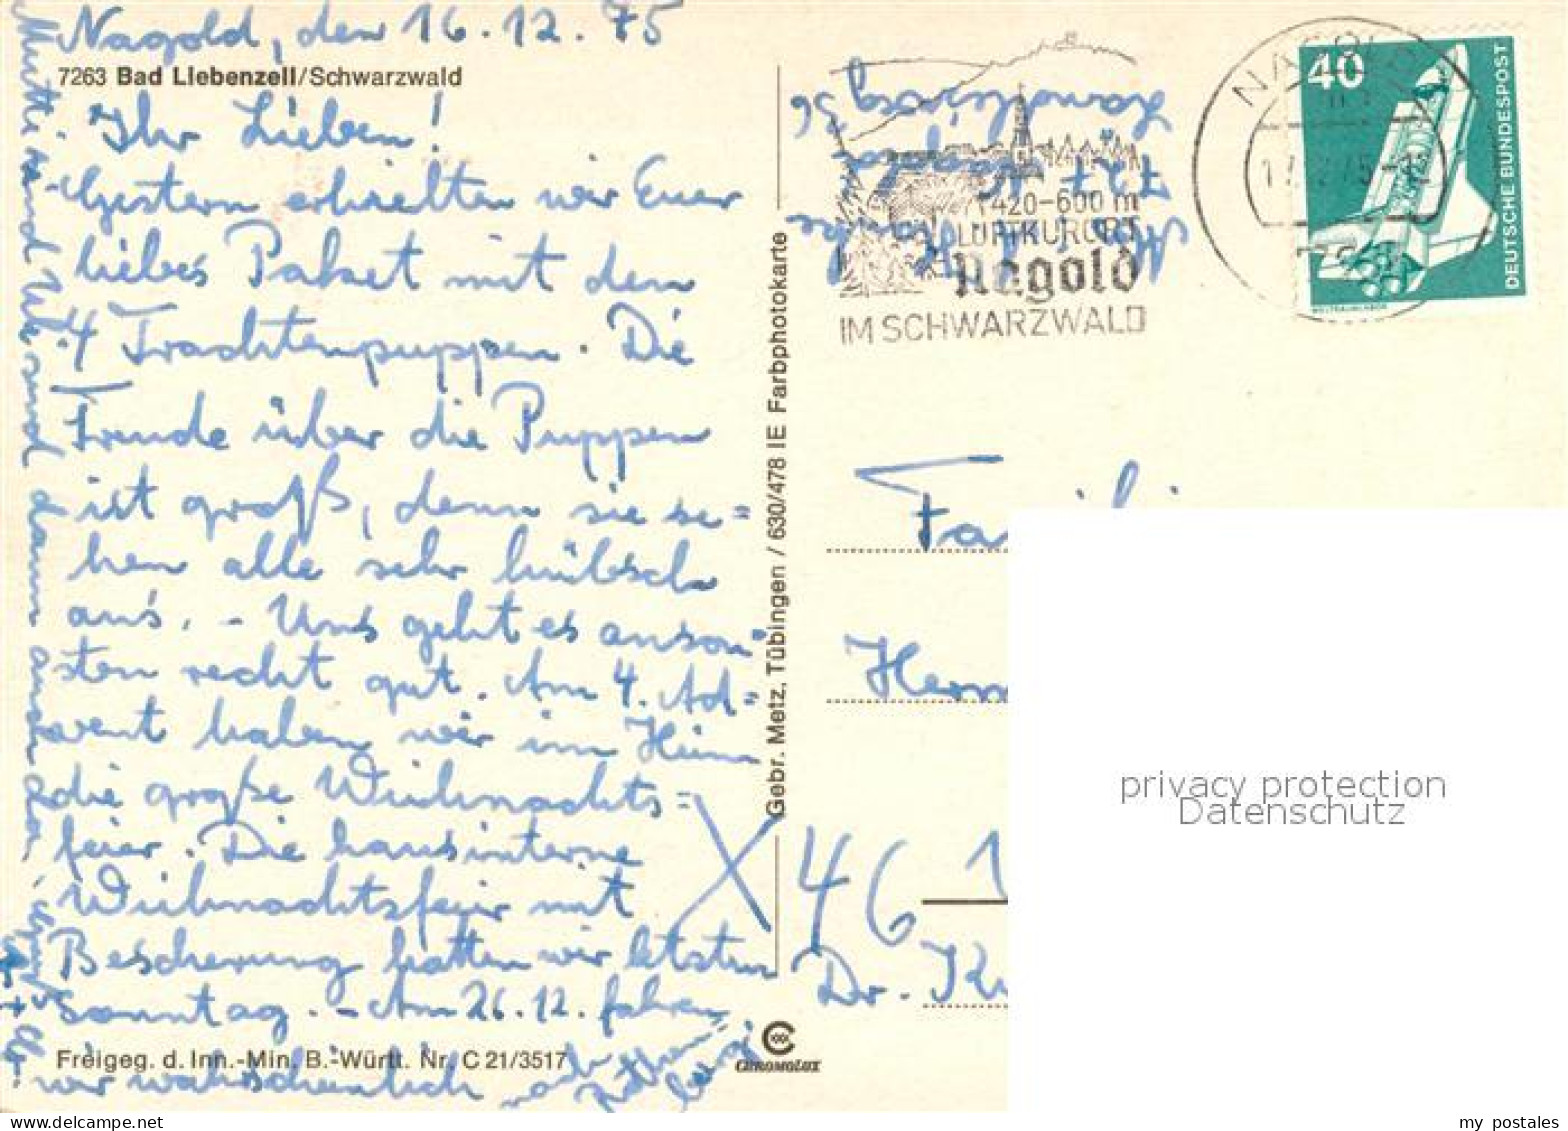 Nagold, den 16.12.75
7263 Bad Liebenzell/Schwarzwald
Ihr Lieben!
Gestern erhielten wir Euer
liebes Paket mit den
4 Trachtenpuppen. Die
Freude über die Puppen
ist groß, denn sie se=
hen alle sehr hübsch
aus. - Uns geht es anson=
sten recht gut. Am 4. Ad=
vent haben wir im Heim
die große Weihnachts=
feier. Die hausinterne
Weihnachtsfeier mit
Bescherung hatten wir letzten
Sonntag. - Am 26.12. fahren
Freigeg. d. Inn.-Min. B.-Württ. Nr. C 21/3517
wir wahrscheinlich nach
Mutti und Ute sind dann auch da.
Gebr. Metz, Tübingen / 630/478 IE Farbphotokarte
CHROMOLUX
727 Nagold
36
420-600 m
LUFTKURORT
Nagold
IM SCHWARZWALD
NAGOLD
40
DEUTSCHE BUNDESPOST
Familie
46 1
Dr.
privacy protection
Datenschutz
www.delcampe.net
my_postales